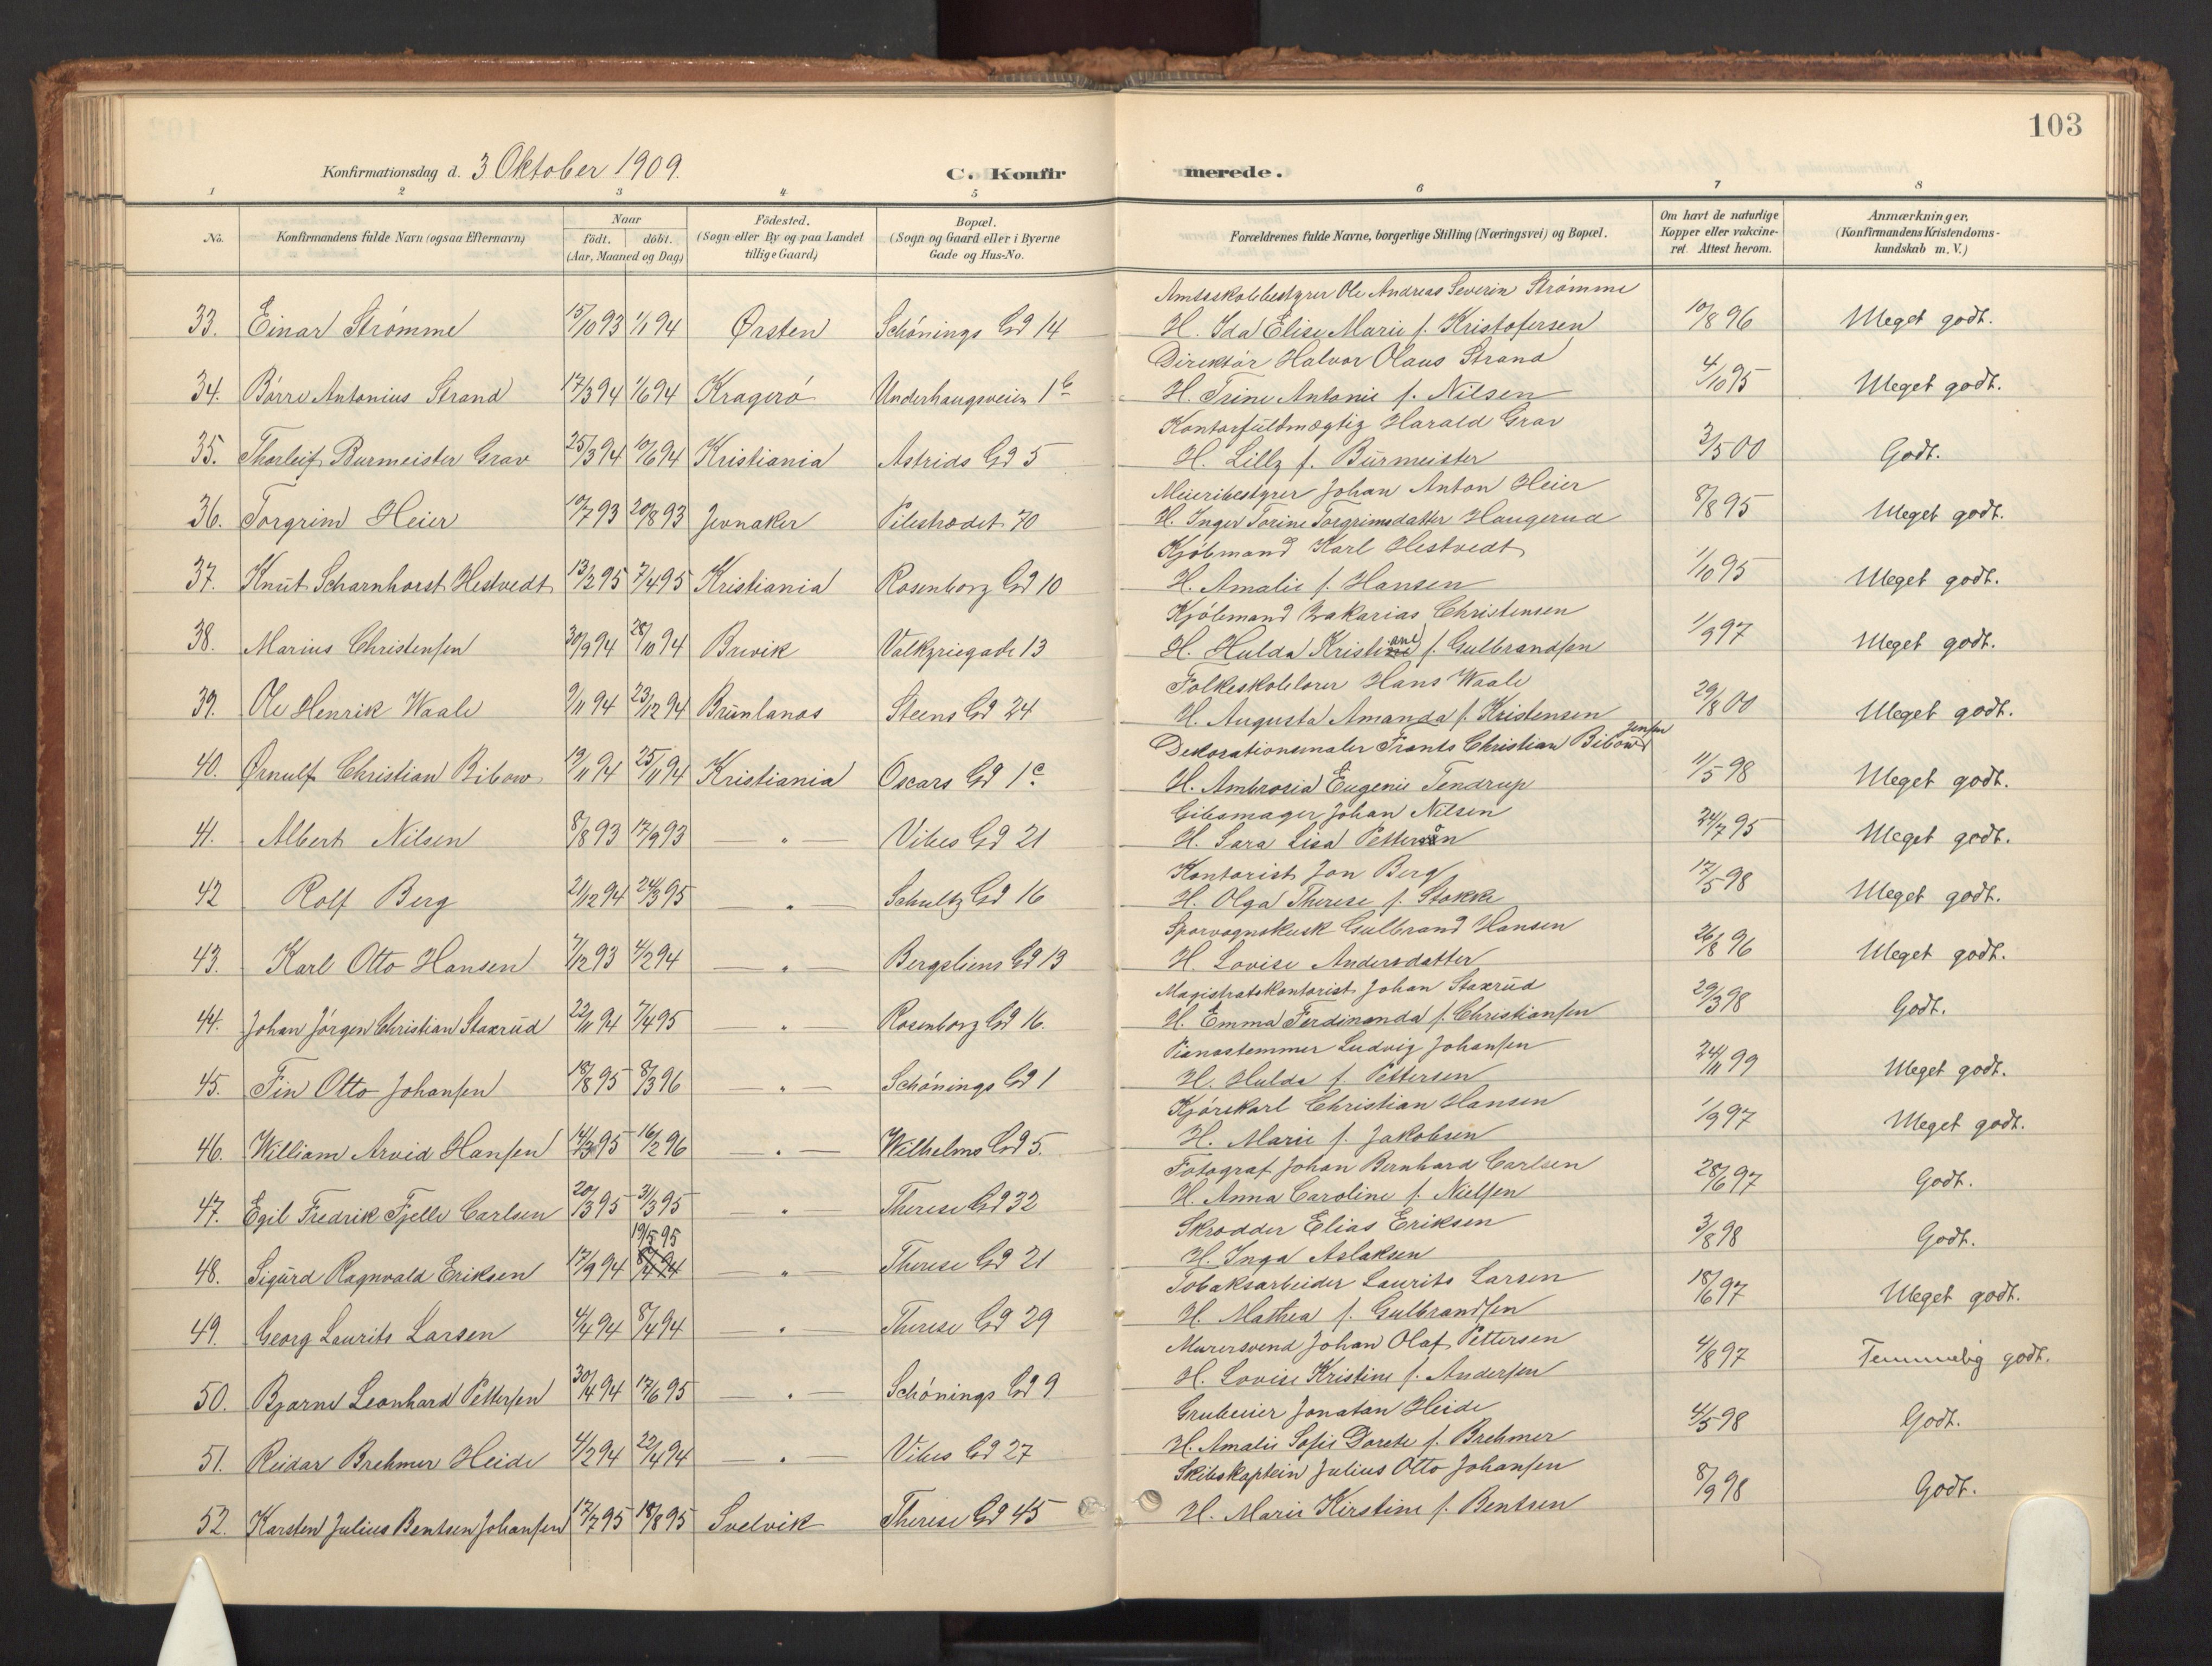 103
Konfirmationsdag d. 3 Oktober 1909.
C. Konfirmerede.
1 2 3 4 5 6 7 8
No.
Konfirmandens fulde Navn (ogsaa Efternavn)
Naar
födt. döbt.
(Aar, Maaned og Dag)
Födested.
(Sogn eller By og paa Landet
tillige Gaard)
Bopæl.
(Sogn og Gaard eller i Byerne
Gade og Hus-No.
Forældrenes fulde Navne, borgerlige Stilling (Næringsvei) og Bopæl.
Om havt de naturlige
Kopper eller vakcine-
ret. Attest herom.
Anmærkninger.
(Konfirmandens Kristendoms-
kundskab m. V.)
Amtsskolebestyrer Ole Andreas Severin Strømme
33. Einar Strømme 15/10 93 1/1 94 Ørsten Schönings Gd 14 H. Ida Elise Marie f. Kristofersen 10/8 96 Meget godt.
Direktör Halvor Olaus Strand
34. Börre Antonius Strand 17/3 94 1/6 94 Kragerö Underhaugsveien 1b H. Trine Antonie f. Nilsen 4/10 95 Meget godt.
Kontorfuldmægtig Harald Grav
35. Thorleif Burmeister Grav 25/3 94 10/6 94 Kristiania Astrids Gd 5 H. Lilly f. Burmeister 3/5 00 Godt.
Meieribestyrer Johan Anton Heier
36. Torgrim Heier 10/7 93 20/8 93 Jevnaker Pilestrædet 70 H. Inger Torine Torgrimsdatter Haugerud 8/8 95 Meget godt.
Kjöbmand Karl Hestvedt
37. Knut Scharnhorst Hestvedt 13/2 95 7/4 95 Kristiania Rosenborg Gd 10 H. Amalie f. Hansen 1/10 95 Meget godt.
Kjöbmand Zakarias Christensen
38. Marius Christensen 30/9 94 28/10 94 Brevik Valkyriegade 13 H. Hulda Kristiane f. Gulbrandsen 1/9 97 Meget godt.
Folkeskolelærer Hans Waale
39. Ole Henrik Waale 9/11 94 23/12 94 Brunlanæs Steens Gd 24 H. Augusta Amanda f. Kristensen 29/8 00 Meget godt.
Dekorationsmaler Frants Christian Bibow Jensen
40. Ørnulf Christian Bibow 19/11 94 25/11 94 Kristiania Oscars Gd 1c H. Ambrosia Eugenie Tendrup 11/5 98 Meget godt.
Gibsmager Johan Nilsen
41. Albert Nilsen 8/8 93 17/9 93 — " — Vibes Gd 21 H. Sara Lisa Petterson 24/7 95 Meget godt.
Kontorist Jon Berg
42 Rolf Berg 21/12 94 24/3 95 — " — Schultz Gd 16 H. Olga Therese f. Stokke 17/5 98 Meget godt.
Sporvognskusk Gulbrand Hansen
43. Karl Otto Hansen 7/12 93 4/2 94 — " — Bergsliens Gd 13 H. Lovise Andersdatter 26/8 96 Meget godt.
Magistratskontorist Johan Staxrud
44. Johan Jörgen Christian Staxrud 22/11 94 7/4 95 " Rosenborg Gd 16. H. Emma Ferdinanda f. Christiansen 29/3 98 Godt.
Pianostemmer Ludvig Johansen
45. Fin Otto Johansen 18/8 95 8/3 96 — " — Schönings Gd 1 H. Hulda f. Pettersen 24/11 99 Meget godt.
Kjörekarl Christian Hansen
46. William Arvid Hansen 14/3 95 16/2 96 — " — Wilhelms Gd 5. H. Marie f. Jakobsen 1/9 97 Meget godt.
Fotograf Johan Bernhard Carlsen
47. Egil Fredrik Fjelle Carlsen 20/3 95 31/3 95 — " Therese Gd 32 H. Anna Caroline f. Nielsen 28/6 97 Godt.
Skrædder Elias Eriksen
19/5 95
48. Sigurd Ragnvald Eriksen 17/9 94 8/4 94 — " — Therese Gd 21 H. Inga Aslaksen 3/8 98 Godt.
Tobaksarbeider Laurits Larsen
49. Georg Laurits Larsen 4/4 94 8/4 94 " Therese Gd 29 H. Mathea f. Gulbrandsen 18/6 97 Meget godt.
Murersvend Johan Olaf Pettersen
50. Bjarne Leonhard Pettersen 30/4 94 17/6 95 — " — Schönings Gd 9 H. Lovise Kristine f. Andersen 4/8 97 Temmelig godt.
Grubeeier Jonatan Heide
51. Reidar Brehmer Heide 4/2 94 22/4 94 — " — Vibes Gd 27 H. Amalie Sofie Dorete f. Brehmer 4/5 98 Godt.
Skibskaptein Julius Otto Johansen
52. Karsten Julius Bentsen Johansen 17/7 95 18/8 95 Svelvik Therese Gd 45 H. Marie Kirstine f. Bentsen 8/9 98 Godt.